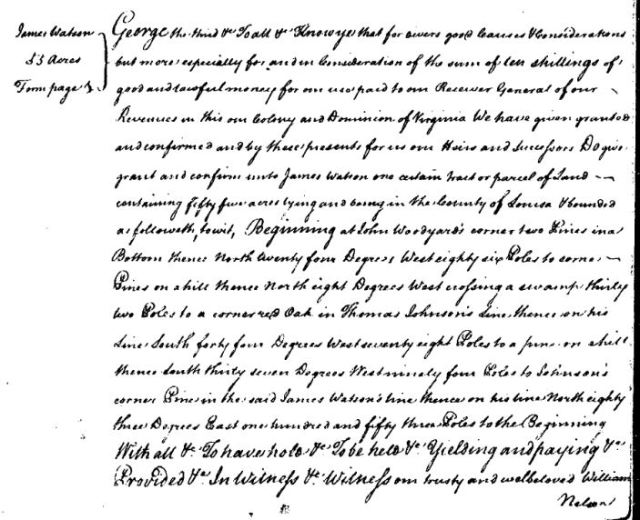 James Watson
55 Acres
Form page 2
George the third &c To all &c Know ye that for divers good Causes & Considerations
but more especially for and in Consideration of the sum of ten shillings of
good and lawful money for our use paid to our Receiver General of our
Revenues in this our Colony and Dominion of Virginia We have given granted
and confirmed and by these presents for us our Heirs and Successors Do give
grant and confirm unto James Watson one certain tract or parcel of Land
containing fifty five acres lying and being in the County of Louisa & bounded
as followeth, to wit, Beginning at John Woodyard's corner two Pines in a
Bottom thence North twenty four Degrees West eighty six Poles to corner
Pines on a hill thence North eight Degrees West crossing a swamp thirty
two Poles to a corner red Oak in Thomas Johnson's Line thence on his
Line South forty four Degrees West seventy eight Poles to a pine on a hill
thence South thirty seven Degrees West ninety four Poles to Johnson's
corner Pines in the said James Watson's line thence on his line North eighty
three Degrees East one hundred and fifty three Poles to the Beginning
With all &c To have hold &c To be held &c Yielding and paying &c
Provided &c In Witness &c Witness our trusty and welbeloved William
Nelson